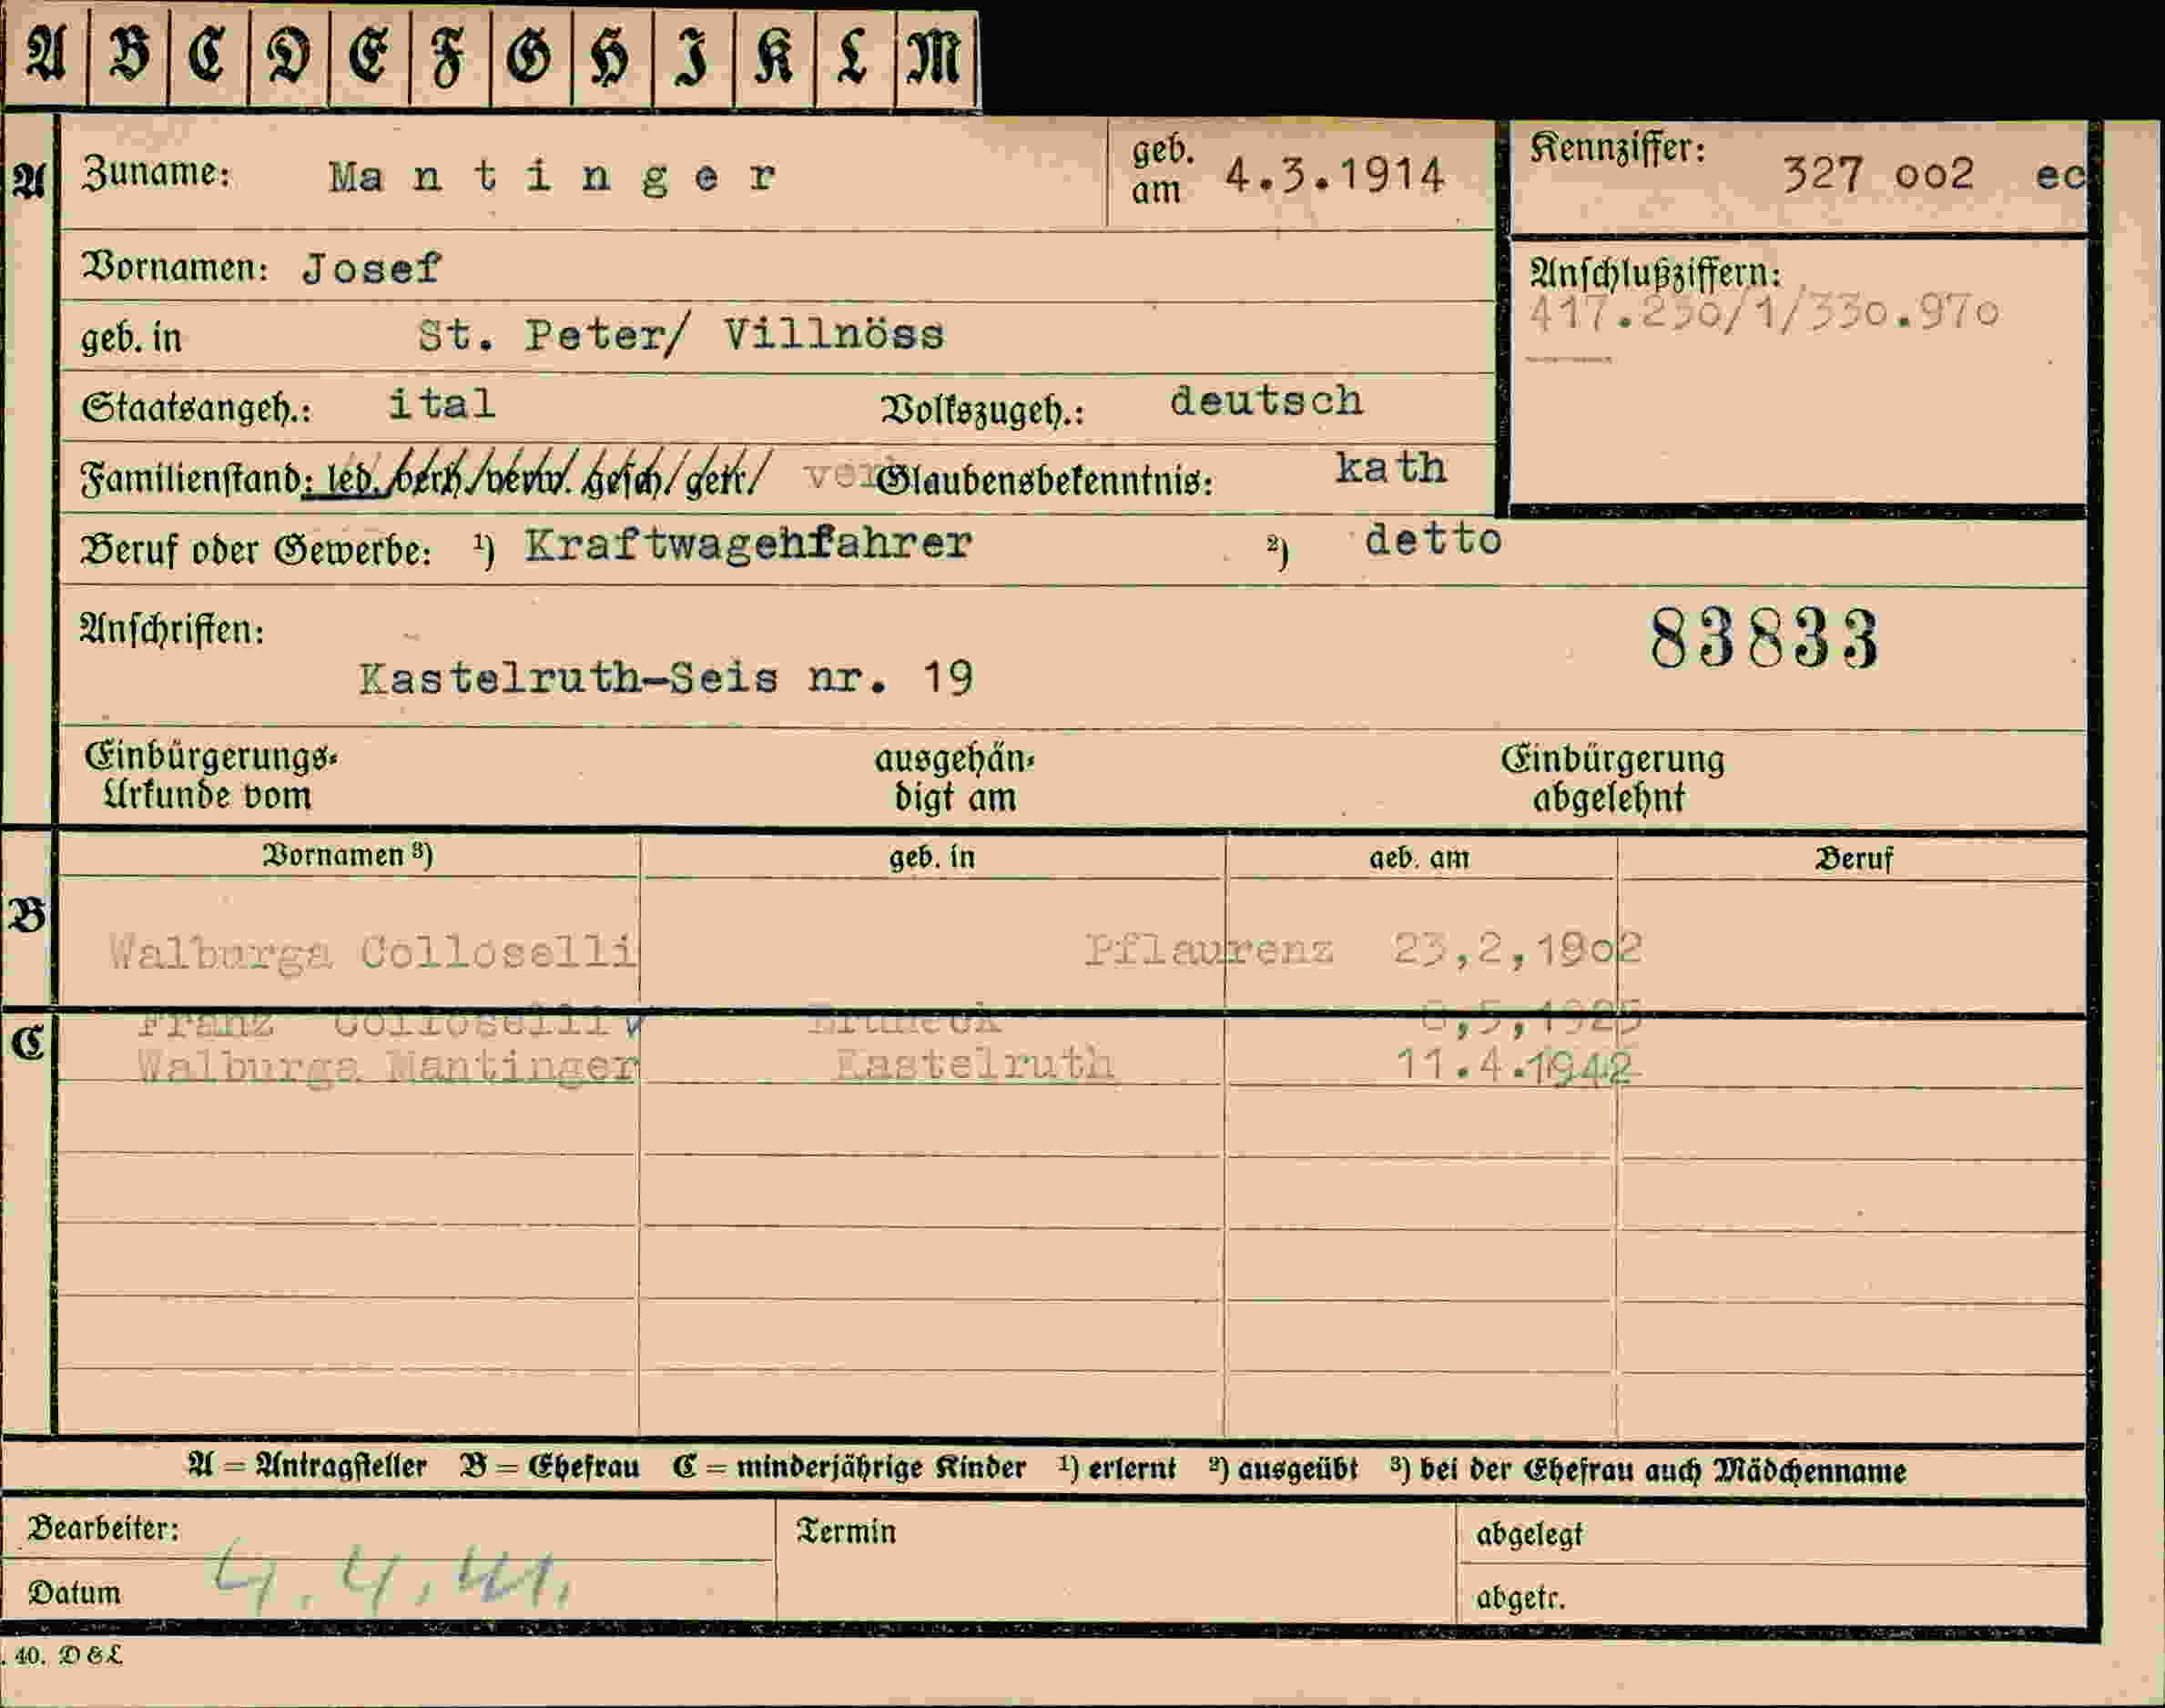 A B C D E F G H I K L M
A Zuname: Mantinger geb. am 4.3.1914 Kennziffer: 327 002 ec
Vornamen: Josef Anschlußziffern:
417.230/1/330.970
geb. in St. Peter/ Villnöss
Staatsangeh.: ital Volkszugeh.: deutsch
Familienstand: led./verh./verw. gesch/getr/ Glaubensbekenntnis: kath
Beruf oder Gewerbe: ¹) Kraftwagehfahrer ²) detto
Anschriften: 83833
Kastelruth-Seis nr. 19
Einbürgerungs- ausgehän- Einbürgerung
Urkunde vom digt am abgelehnt
Vornamen ³) geb. in geb. am Beruf
B
Walburga Colloselli Pflaurenz 23,2,1902
C Franz Colloselli Bruneck ,5,1925
Walburga Mantinger Kastelruth 11.4.1942
A = Antragsteller B = Ehefrau C = minderjährige Kinder ¹) erlernt ²) ausgeübt ³) bei der Ehefrau auch Mädchenname
Bearbeiter: Termin abgelegt
Datum 4.4.41. abgetr.
. 40. D & L